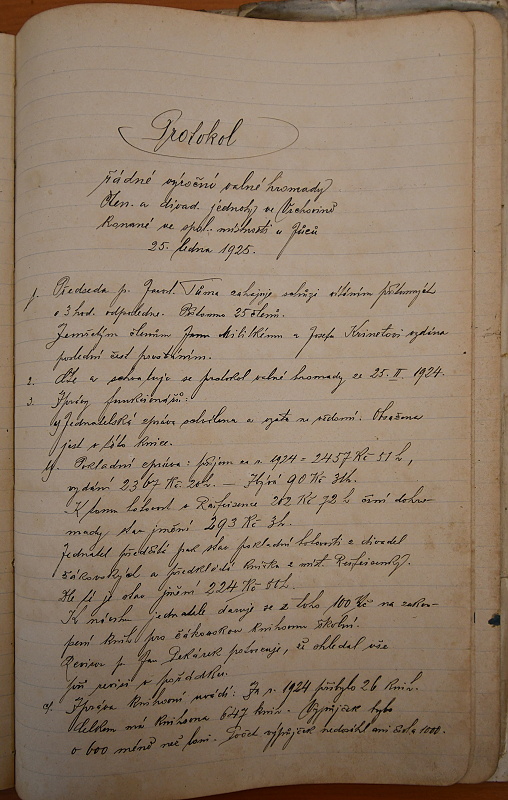 Protokol
řádné výroční valné hromady
Čten. a divad. jednoty ve Vrchovině
konané ve spol. místnosti u Jůců
25. ledna 1925.
1. Předseda p. Jarosl. Tůma zahajuje schůzi vítáním přítomných
o 3 hod. odpoledne. Přítomno 25 členů.
Zemřelým členům Janu Miličkému a Josefu Krinetovi vzdána
poslední čest povstáním.
2. Čte a schvaluje se protokol valné hromady ze 25. II. 1924.
3. Zprávy funkcionářů:
a) Jednatelská zpráva schválena a vzata na vědomí. Obsažena
jest v této knize.
b). Pokladní zpráva: příjem za r. 1924 = 2457 Kč 51 h,
vydání 2367 Kč 20 h. — Zbývá 90 Kč 31 h.
K tomu hotovost v Reifeisence 202 Kč 72 h činí dohro-
mady stav jmění 293 Kč 3 h.
Jednatel předčítá pak stav pokladní hotovosti z divadel
žákovských a předkládá knížku z míst. Reifeisenky.
Dle ní je stav jmění 224 Kč 50 h.
K návrhu jednatele daruje se z toho 100 Kč na zakou-
pení knih pro žákovskou knihovnu školní.
Revisor p. Jan Pekárek potvrzuje, že shledal vše
při revisi v pořádku.
c). Zpráva knihovní uvádí: Za r. 1924 přibylo 26 knih.
Celkem má knihovna 647 knih. Výpůjček bylo
o 600 méně než loni. Počet výpůjček nedosáhl ani čísla 1000.